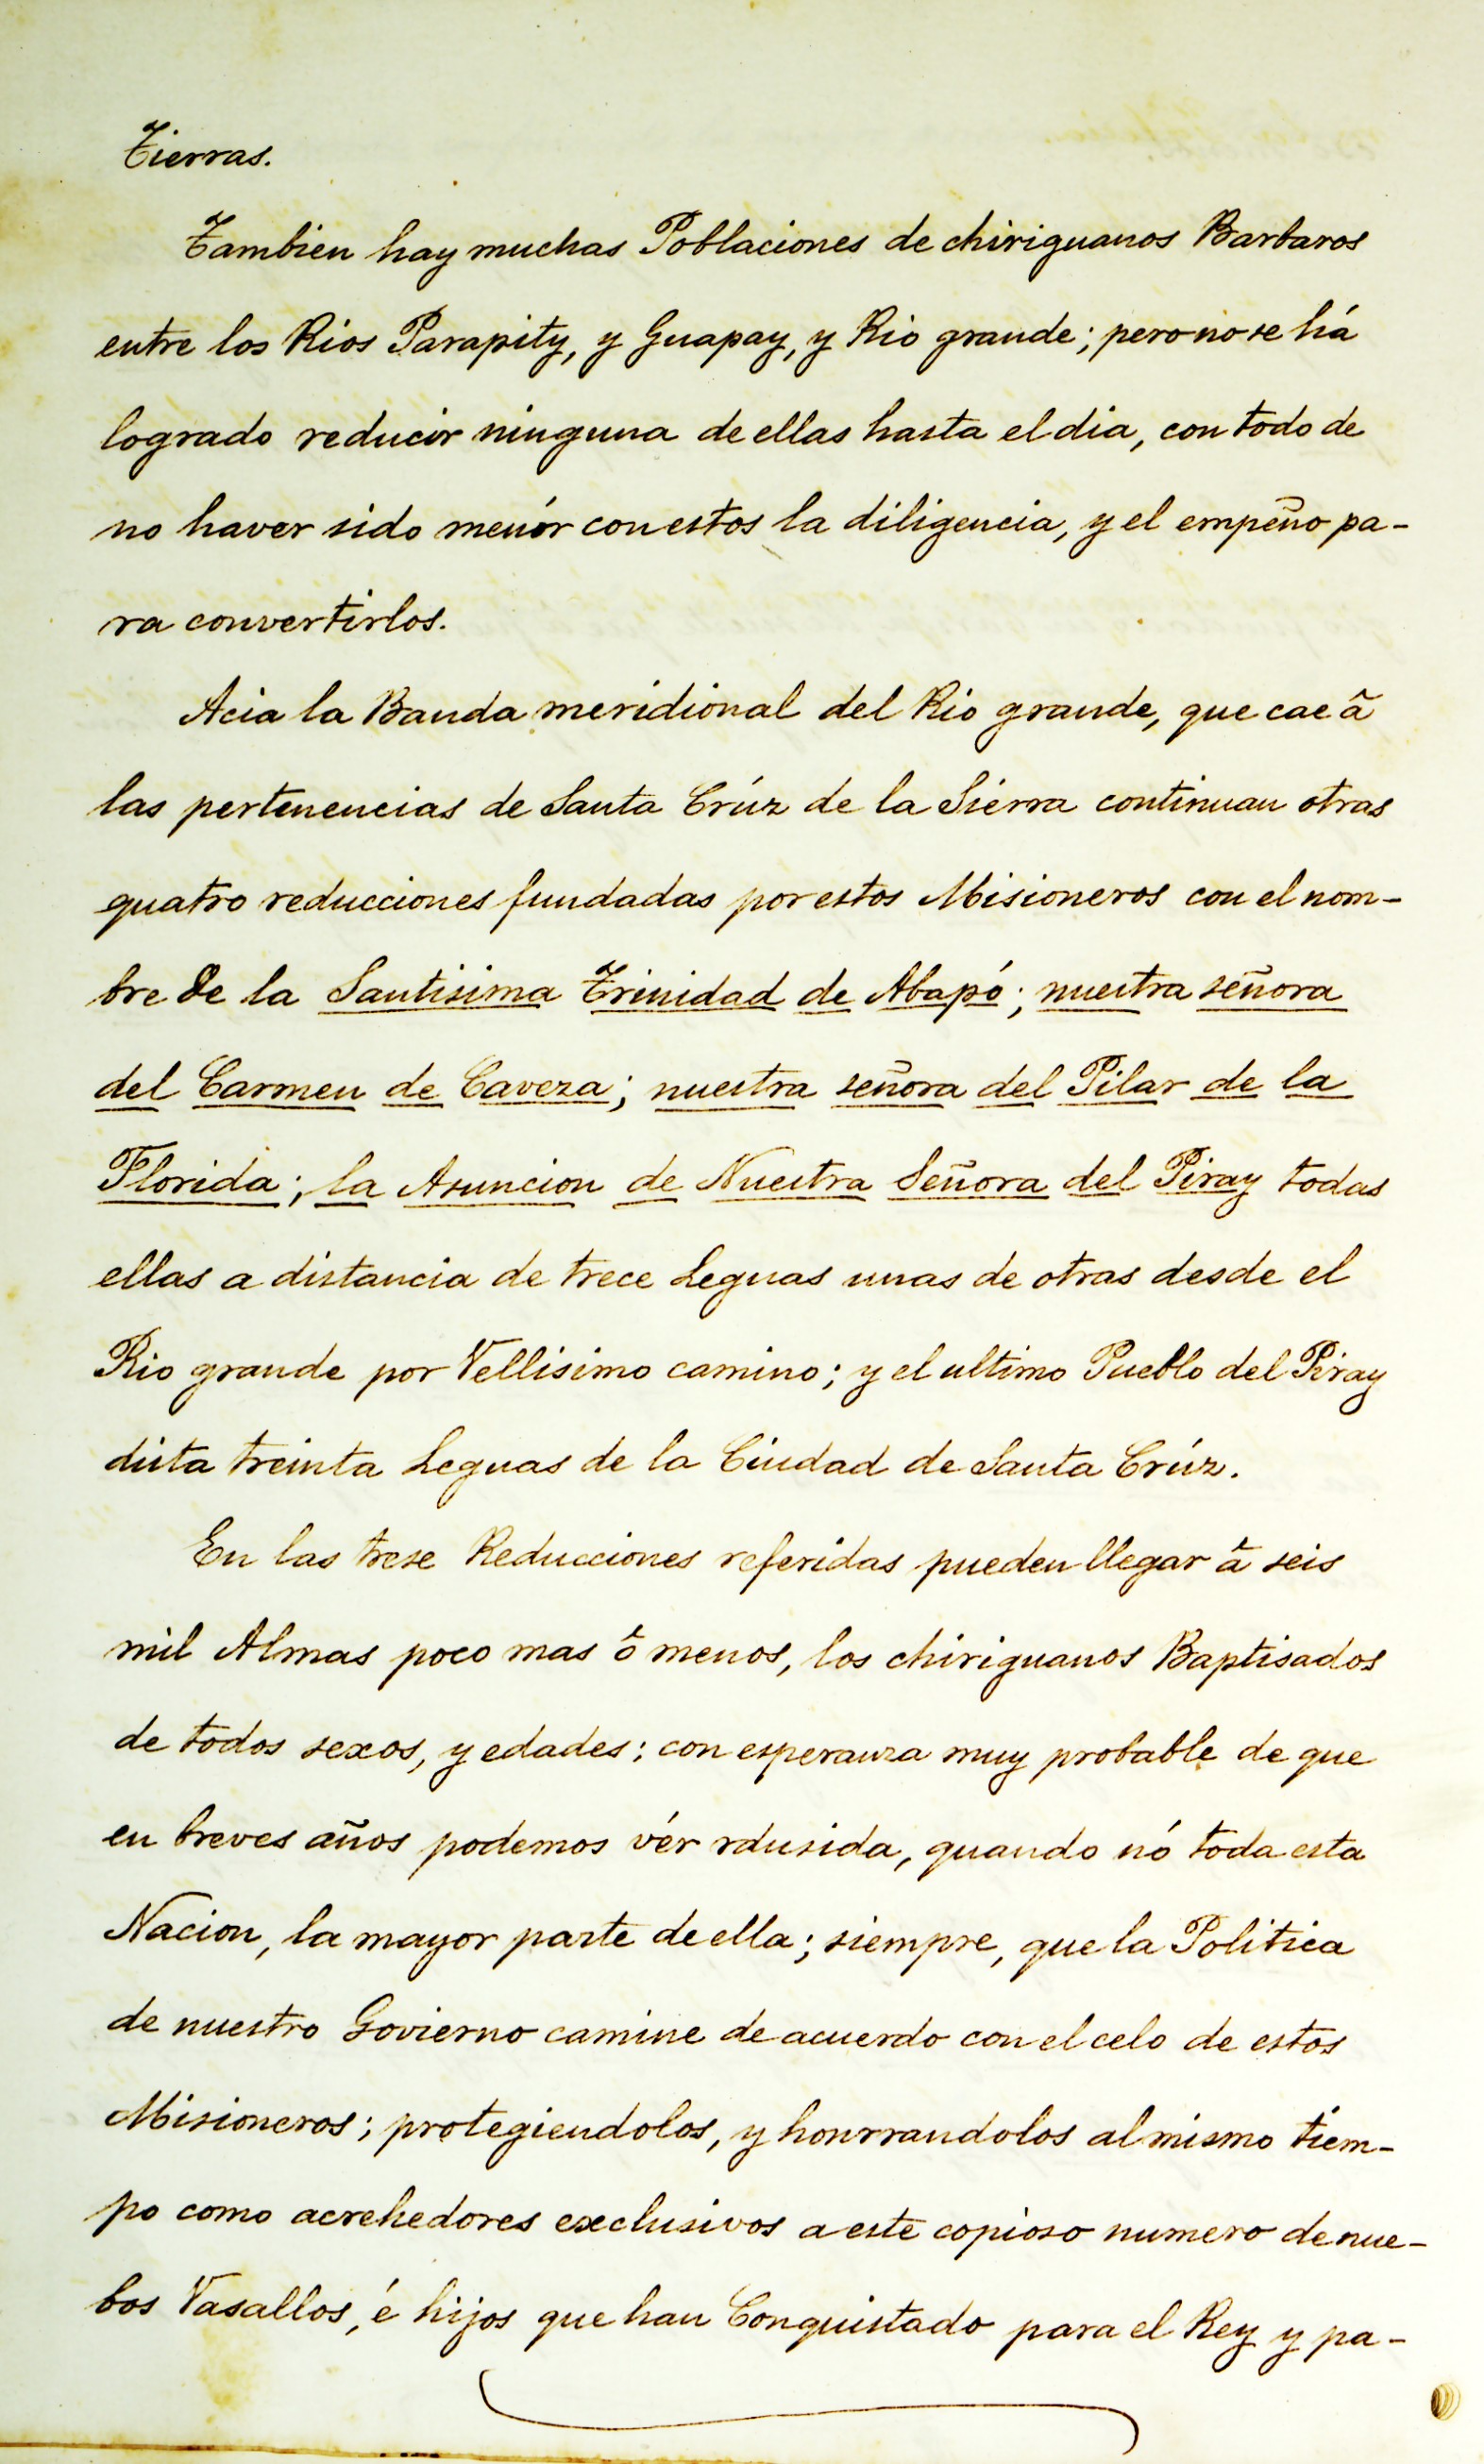 Tierras.
Tambien hay muchas Poblaciones de chiriguanos Barbaros
entre los Rios Parapity, y Guapay, y Rio grande; pero no se há
logrado reducir ninguna de ellas hasta el dia, con todo de
no haver sido menór con estos la diligencia, y el empeño pa-
ra convertirlos.
Acia la Banda meridional del Rio grande, que cae â
las pertenencias de Santa Crúz de la Sierra continuan otras
quatro reducciones fundadas por estos Misioneros con el nom-
bre de la Santisima Trinidad de Abapó; nuestra señora
del Carmen de Caveza; nuestra señora del Pilar de la
Florida; la Asuncion de Nuestra Señora del Piray todas
ellas a distancia de trece Leguas unas de otras desde el
Rio grande por Vellisimo camino; y el ultimo Pueblo del Piray
dista treinta Leguas de la Ciudad de Santa Crúz.
En las trese Reducciones referidas pueden llegar â seis
mil Almas poco mas ô menos, los chiriguanos Baptisados
de todos sexos, y edades; con esperanza muy probable de que
en breves años podemos vér rdusida, quando nó toda esta
Nacion, la mayor parte de ella; siempre, que la Politica
de nuestro Govierno camine de acuerdo con el celo de estos
Misioneros; protegiendolos, y honrrandolos al mismo tiem-
po como acrehedores exclusivos a este copioso numero de nue-
bos Vasallos, é hijos que han Conquistado para el Rey y pa-